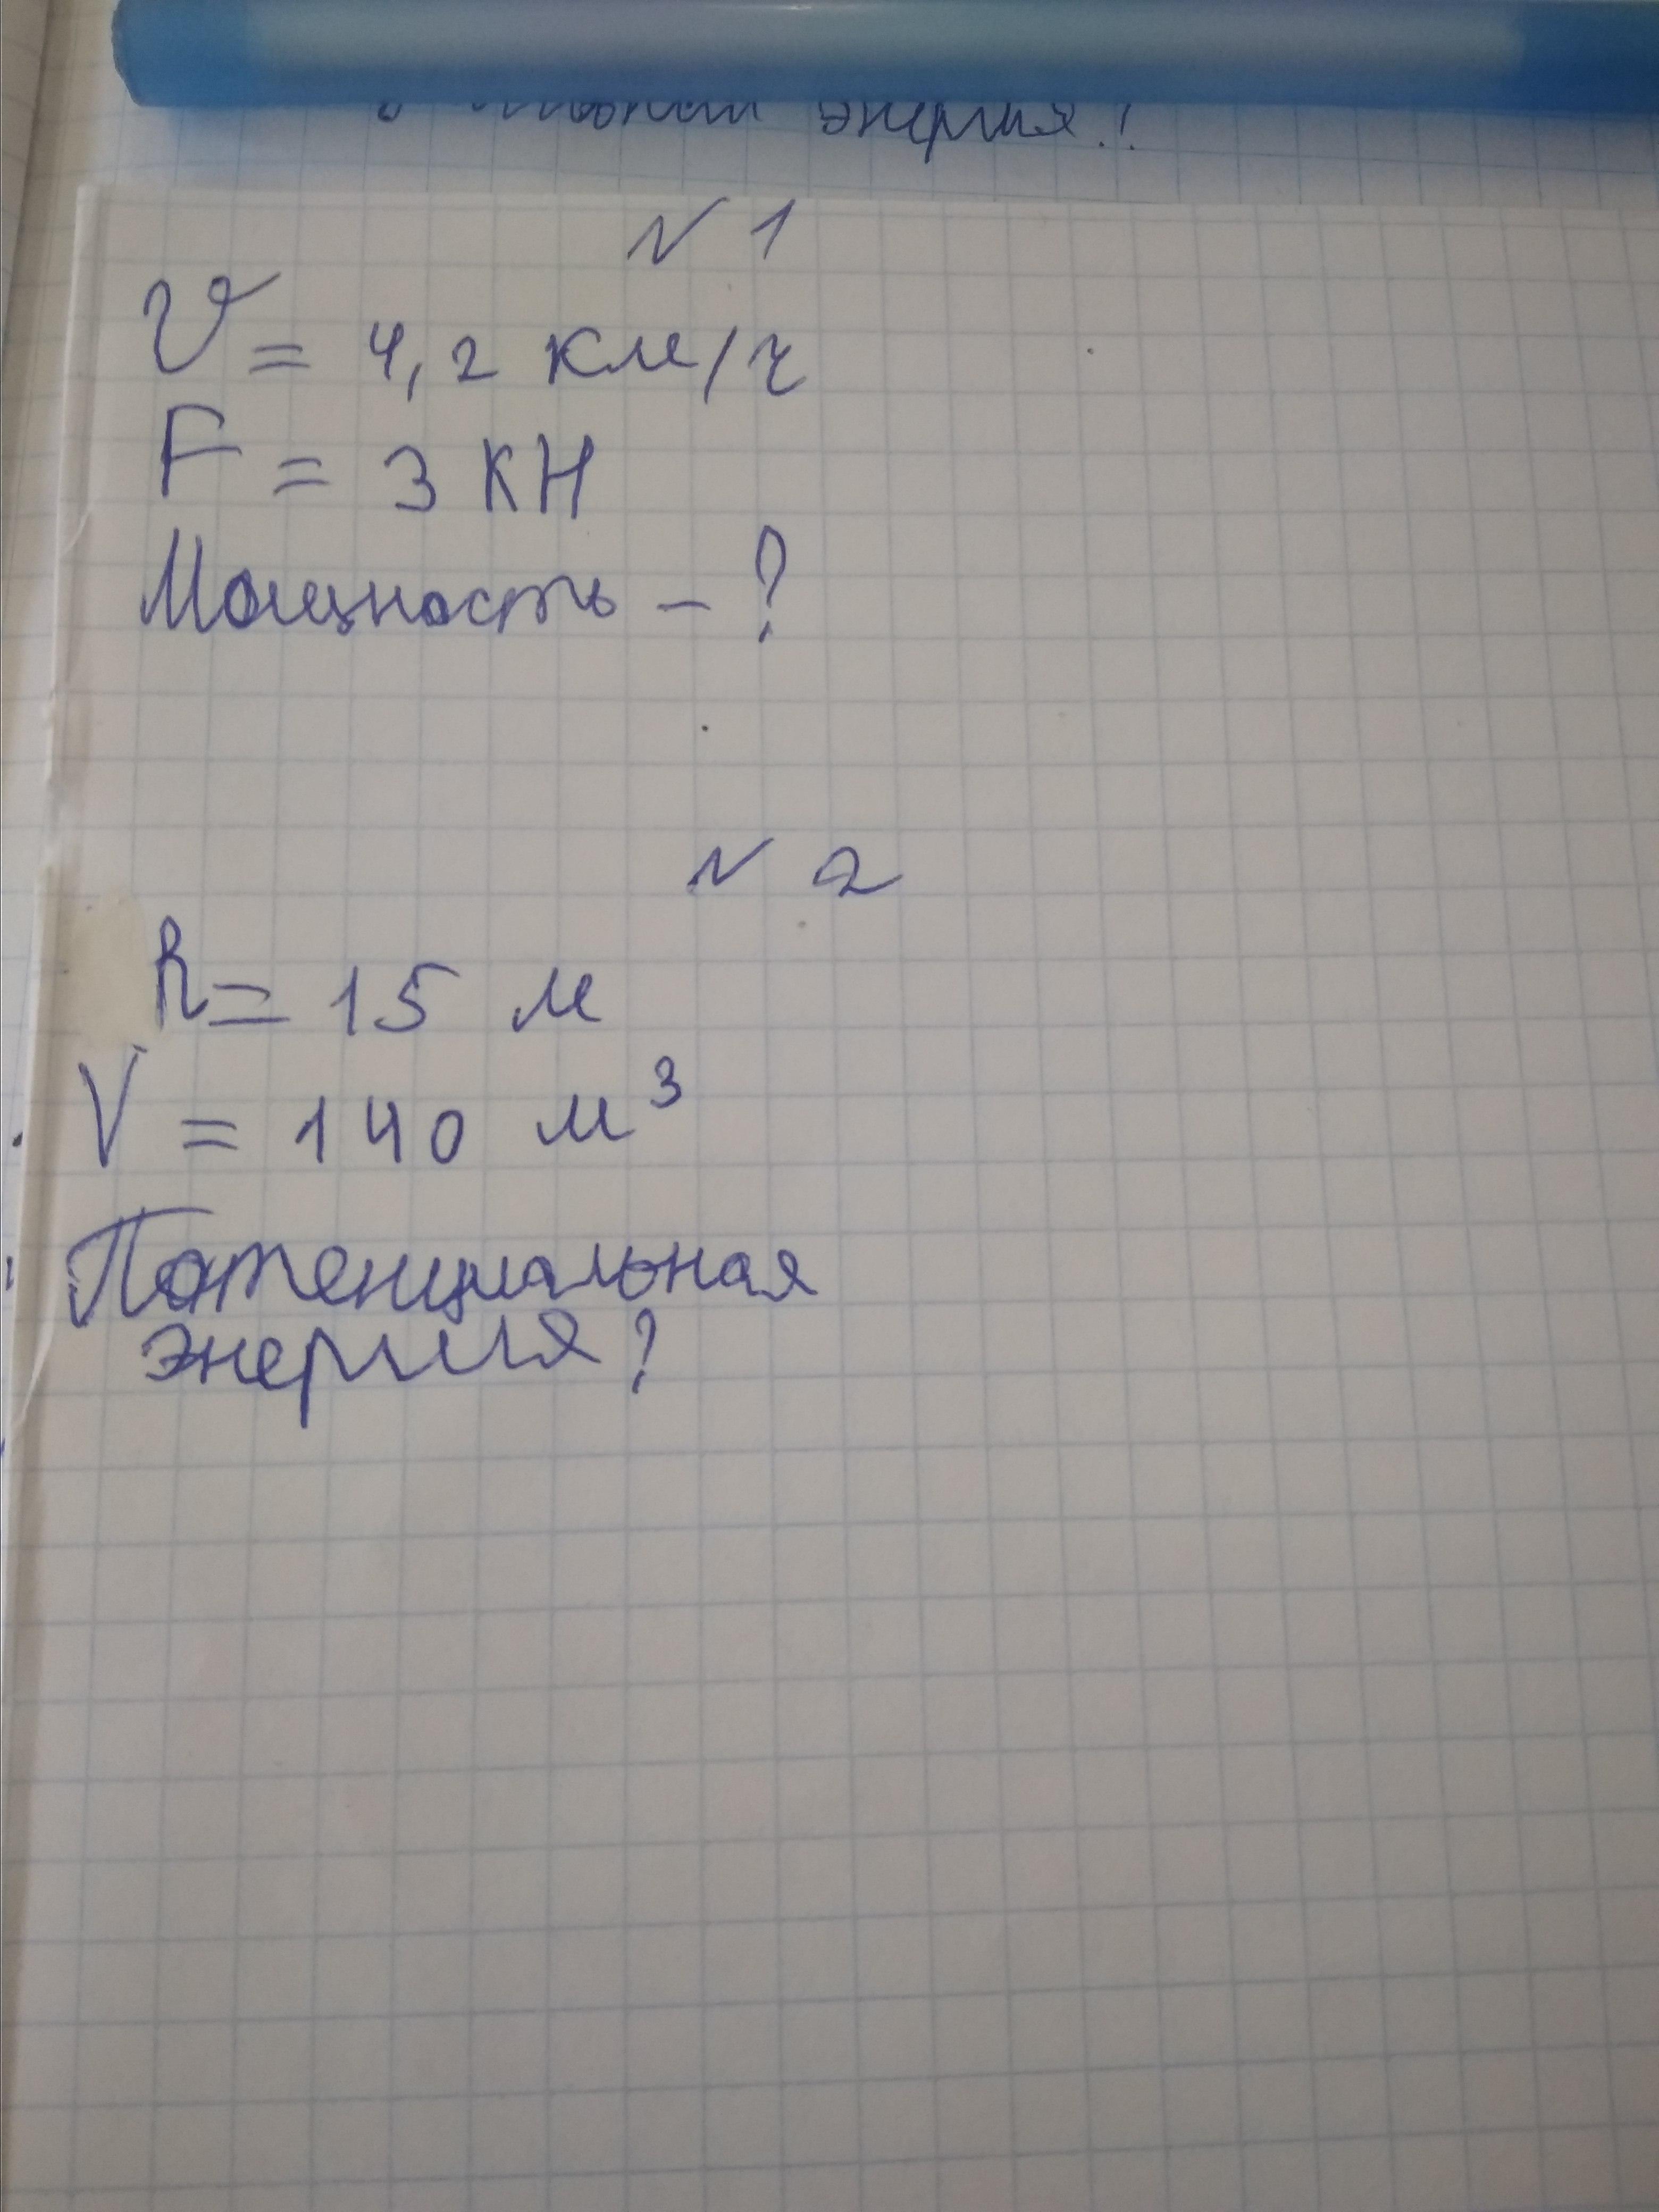 энергия?
N 1
V = 4,2 км/ч
F = 3 кН
Мощность - ?
N 2
h = 15 м
V = 140 м³
Потенциальная
энергия?